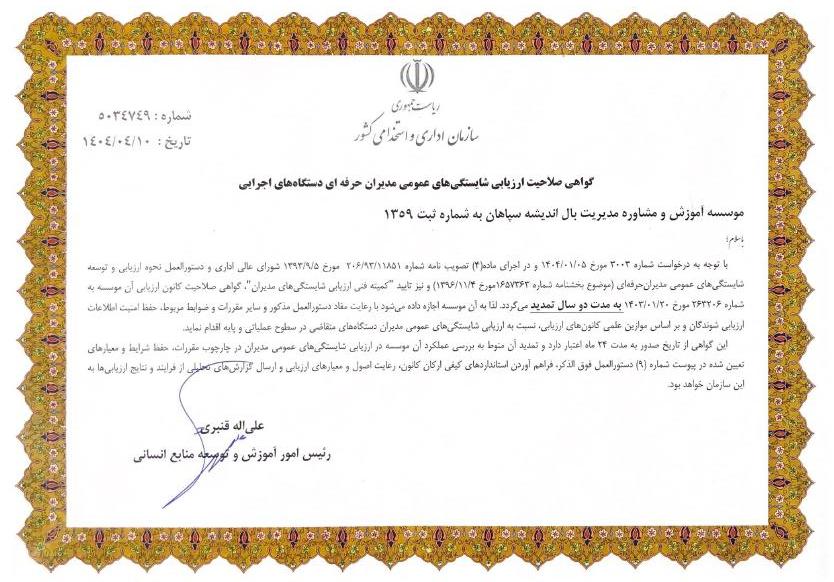 ریاست جمهوری
سازمان اداری و استخدامی کشور
شماره : ۵۰۳۴۷۴۹
تاریخ : ۱۴۰۴/۰۴/۱۰
گواهی صلاحیت ارزیابی شایستگی‌های عمومی مدیران حرفه ای دستگاه‌های اجرایی
موسسه آموزش و مشاوره مدیریت بال اندیشه سپاهان به شماره ثبت ۱۳۵۹
باسلام؛
با توجه به درخواست شماره ۳۰۰۳ مورخ ۱۴۰۴/۰۱/۰۵ و در اجرای ماده(۴) تصویب نامه شماره ۲۰۶/۹۳/۱۱۸۵۱ مورخ ۱۳۹۳/۹/۵ شورای عالی اداری و دستورالعمل نحوه ارزیابی و توسعه
شایستگی‌های عمومی مدیران‌حرفه‌ای (موضوع بخشنامه شماره ۱۶۵۷۳۶۳مورخ ۱۳۹۶/۱۱/۴) و نیز تایید "کمیته فنی ارزیابی شایستگی‌های مدیران"، گواهی صلاحیت کانون ارزیابی آن موسسه به
شماره ۲۶۳۲۰۶ مورخ ۱۴۰۳/۰۱/۲۰ به مدت دو سال تمدید می‌گردد. لذا به آن موسسه اجازه داده می‌شود با رعایت مفاد دستورالعمل مذکور و سایر مقررات و ضوابط مربوط، حفظ امنیت اطلاعات
ارزیابی شوندگان و بر اساس موازین علمی کانون‌های ارزیابی، نسبت به ارزیابی شایستگی‌های عمومی مدیران دستگاه‌های متقاضی در سطوح عملیاتی و پایه اقدام نماید.
این گواهی از تاریخ صدور به مدت ۲۴ ماه اعتبار دارد و تمدید آن منوط به بررسی عملکرد آن موسسه در ارزیابی شایستگی‌های عمومی مدیران در چارچوب مقررات، حفظ شرایط و معیارهای
تعیین شده در پیوست شماره (۹) دستورالعمل فوق الذکر، فراهم آوردن استانداردهای کیفی ارکان کانون، رعایت اصول و معیارهای ارزیابی و ارسال گزارش‌های تحلیلی از فرایند و نتایج ارزیابی‌ها به
این سازمان خواهد بود.
علی‌اله قنبری
رئیس امور آموزش و توسعه منابع انسانی